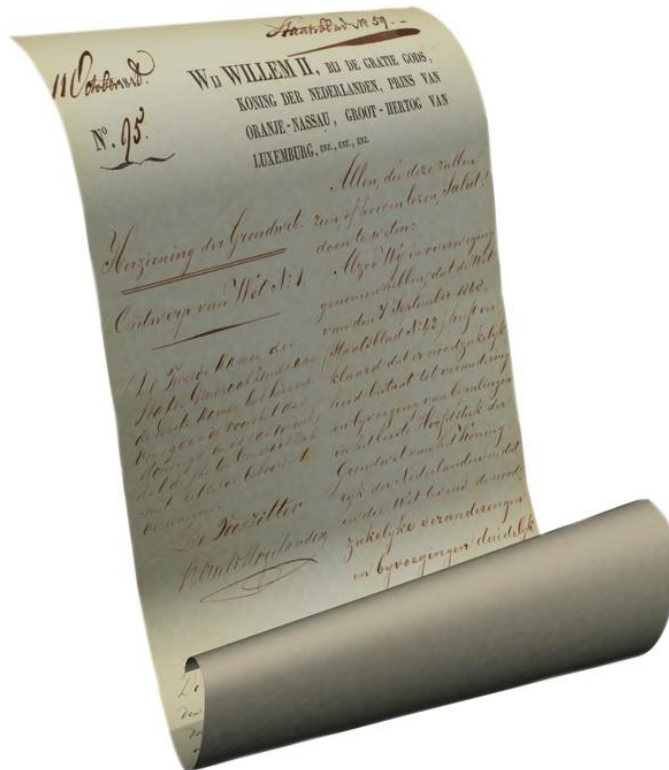 Staatsblad No 59.
11 October 1848.
No. 95.
WIJ WILLEM II, BIJ DE GRATIE GODS,
KONING DER NEDERLANDEN, PRINS VAN
ORANJE-NASSAU, GROOT-HERTOG VAN
LUXEMBURG, ENZ., ENZ., ENZ.
Herziening der Grondwet.
Ontwerp van Wet No 1.
De Tweede Kamer der
Staten Generaal zendt aan
de Eerste Kamer het
voorstel des
Konings
De Voorzitter
Allen, die deze zullen
zien, of hooren lezen, Salut!
doen te weten:
Alzoo Wij in overweging
genomen hebben, dat de Wet
van den 7 September 1848,
(Staatsblad No 42) heeft ver
klaard dat er noodzakelijk
heid bestaat tot verandering
en bijvoeging van bepalingen
in het Eerste Hoofdstuk der
Grondwet van het Koning
rijk der Nederlanden en dat
in die Wet de nood
zakelijke veranderingen
en bijvoegingen duidelijk